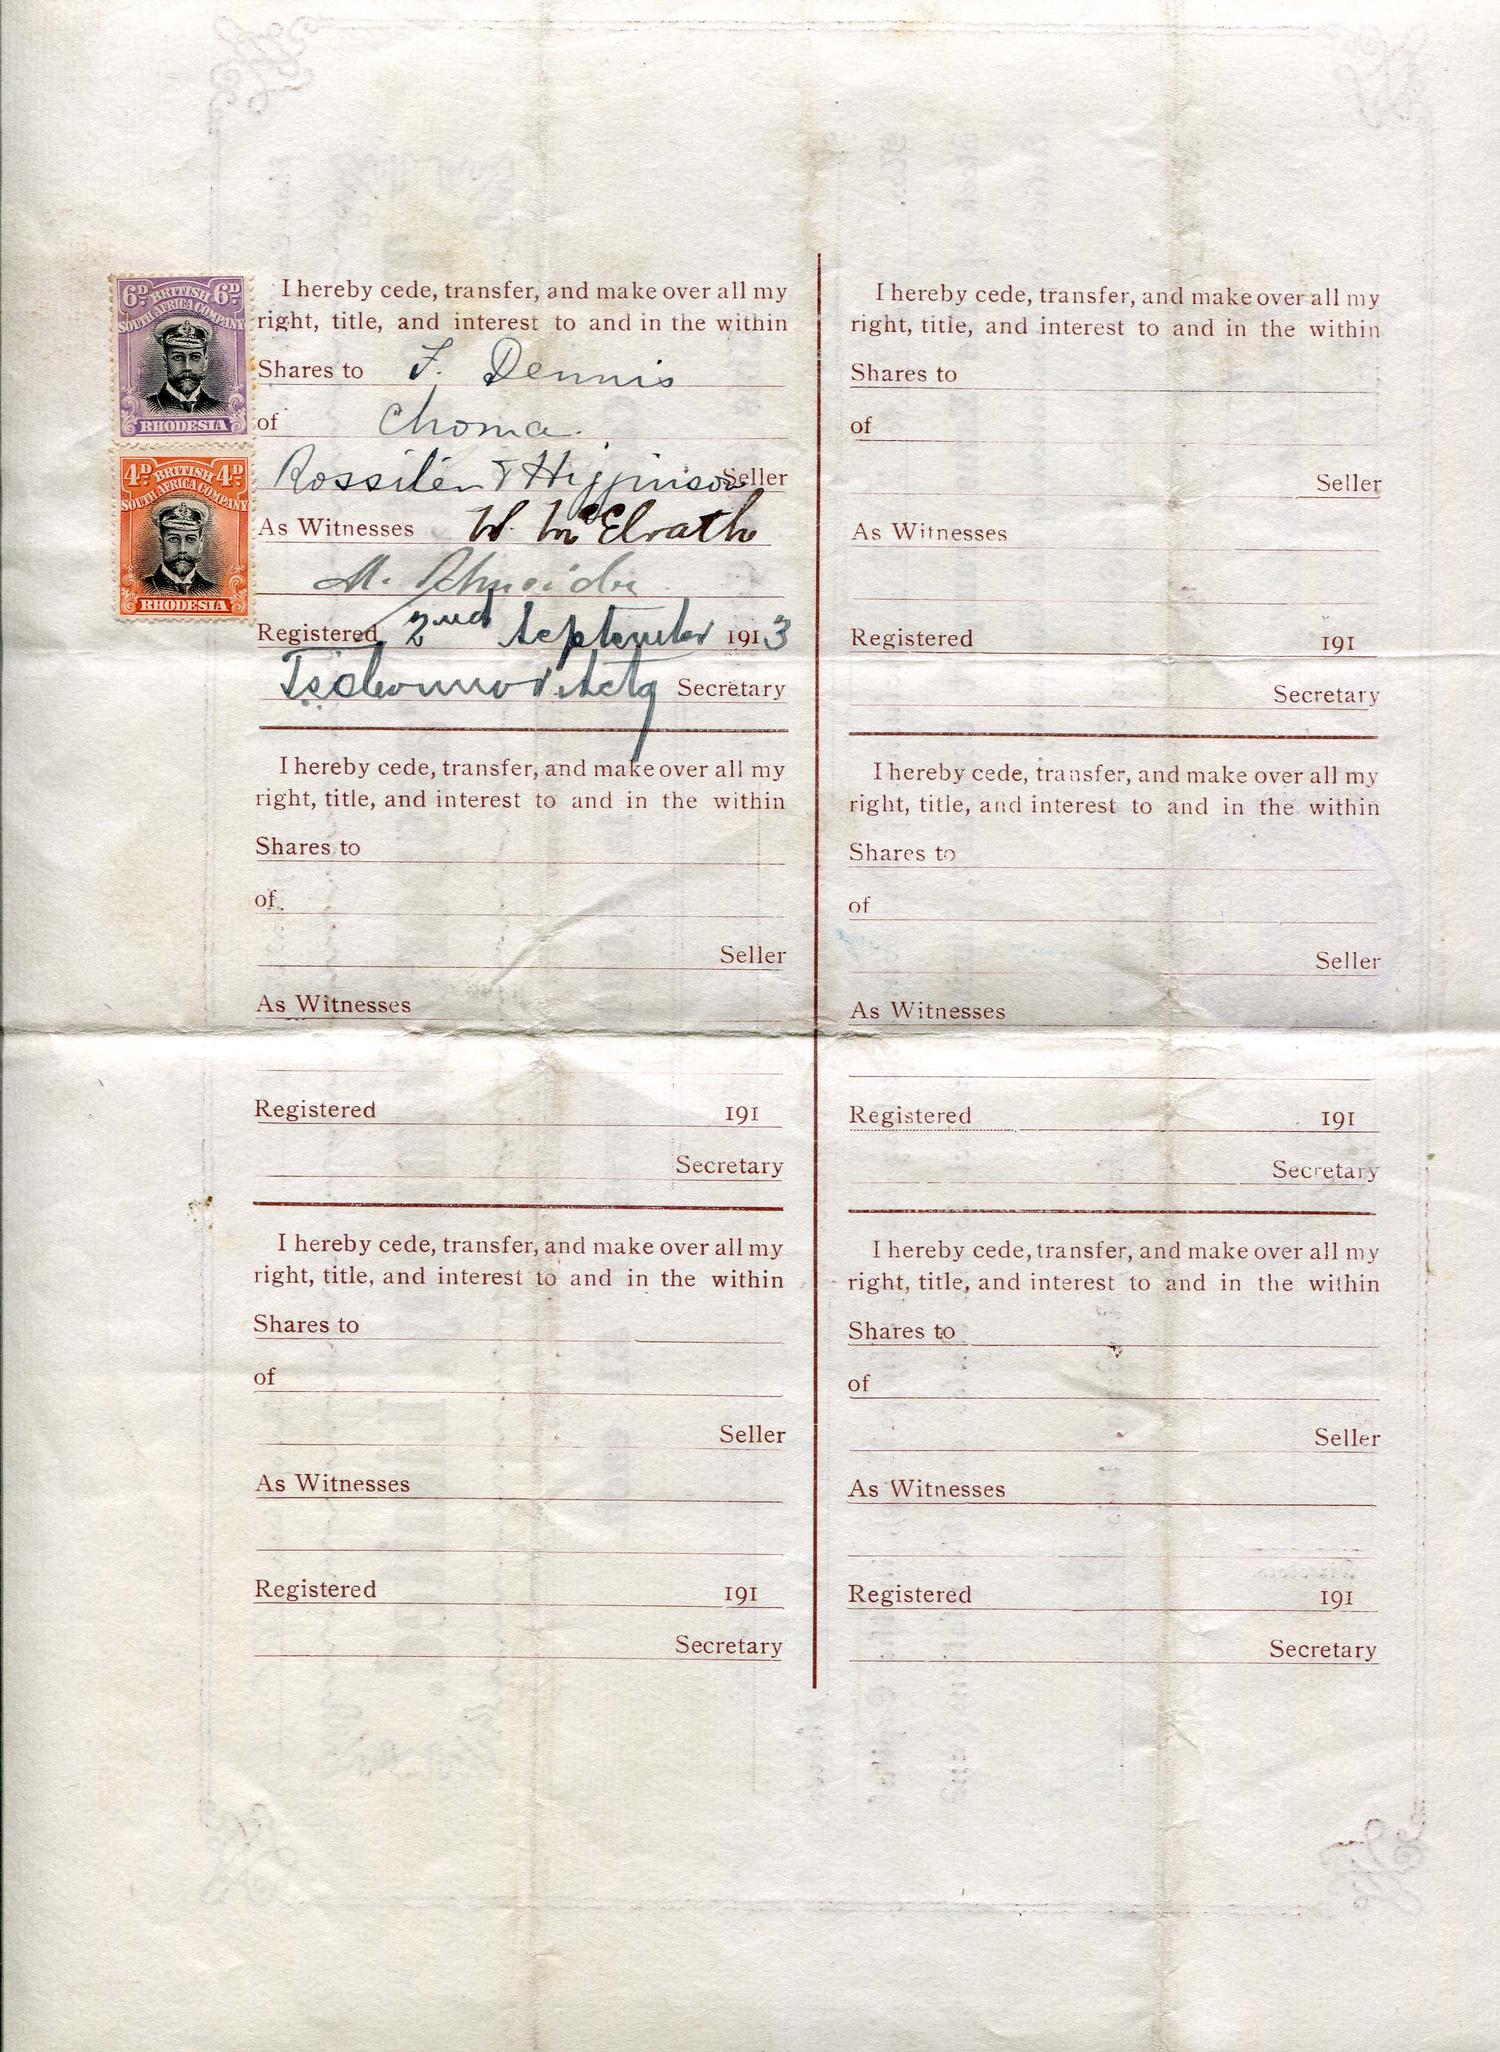 6D BRITISH 6D
SOUTH AFRICA COMPANY
RHODESIA
4D BRITISH 4D
SOUTH AFRICA COMPANY
RHODESIA
I hereby cede, transfer, and make over all my
right, title, and interest to and in the within
Shares to F. Dennis
of Choma.
& Higginson Seller
As Witnesses W. McElrath
M.
Registered 2nd September 1913
Secretary
I hereby cede, transfer, and make over all my
right, title, and interest to and in the within
Shares to
of
Seller
As Witnesses
Registered 191
Secretary
I hereby cede, transfer, and make over all my
right, title, and interest to and in the within
Shares to
of
Seller
As Witnesses
Registered 191
Secretary
I hereby cede, transfer, and make over all my
right, title, and interest to and in the within
Shares to
of
Seller
As Witnesses
Registered 191
Secretary
I hereby cede, transfer, and make over all my
right, title, and interest to and in the within
Shares to
of
Seller
As Witnesses
Registered 191
Secretary
I hereby cede, transfer, and make over all my
right, title, and interest to and in the within
Shares to
of
Seller
As Witnesses
Registered 191
Secretary